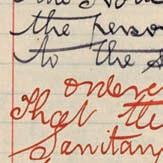 the
the perso
to the s
ordere
That the
Sanitary